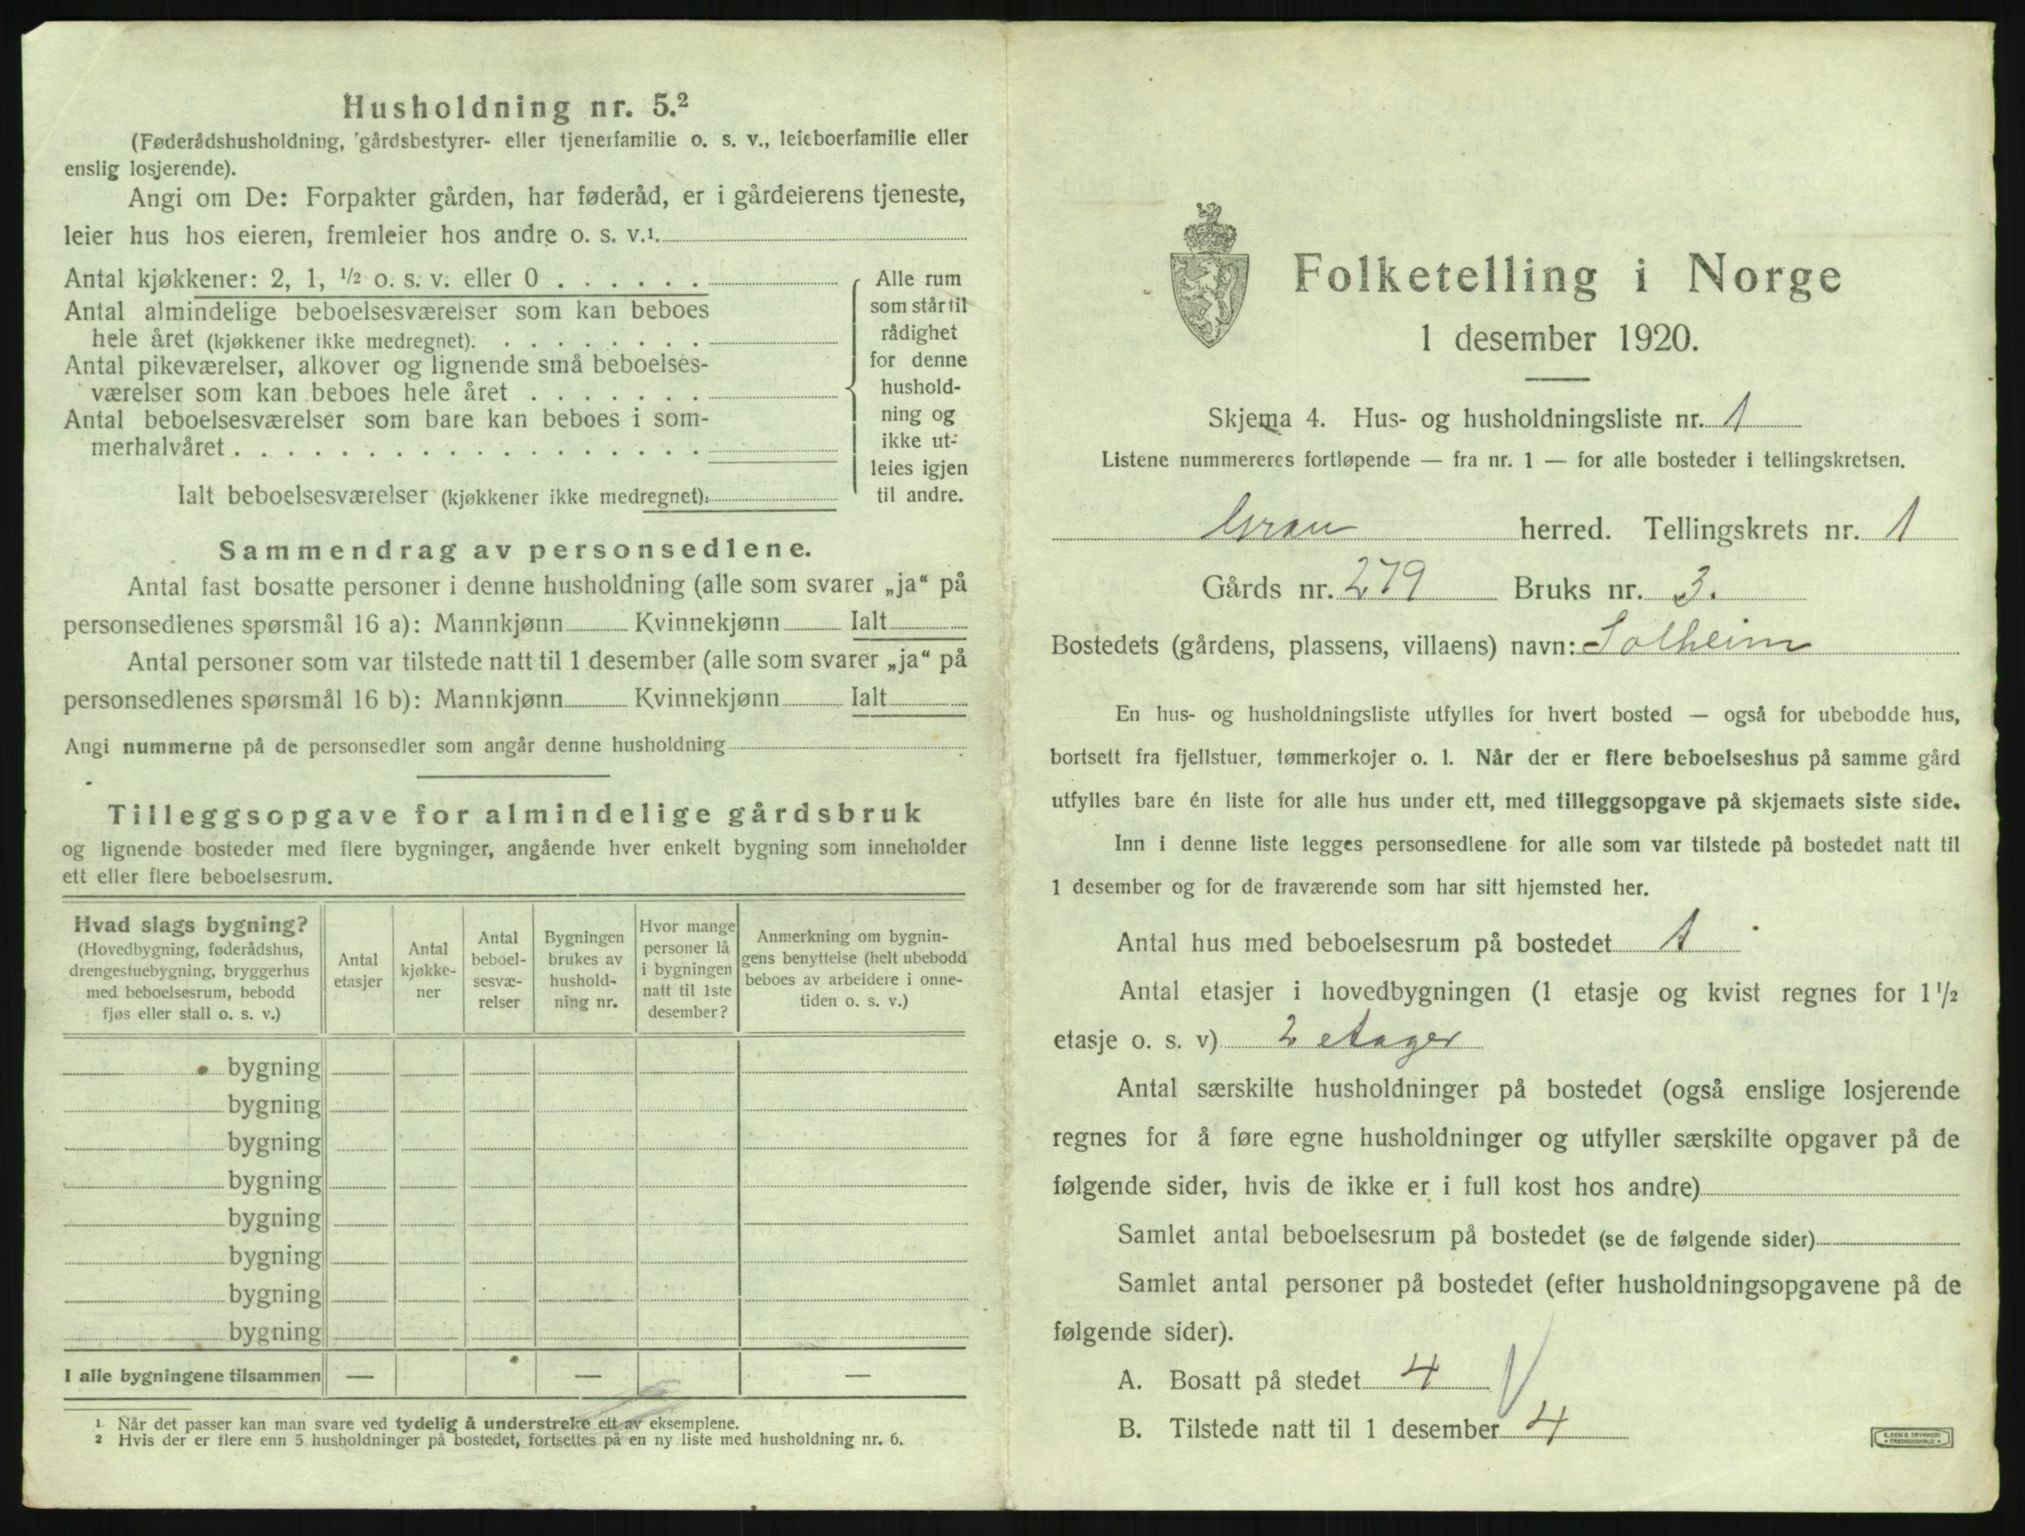 Husholdning nr. 5.²
(Føderådshusholdning, gårdsbestyrer- eller tjenerfamilie o. s. v., leieboerfamilie eller
enslig losjerende).
Angi om De: Forpakter gården, har føderåd, er i gårdeierens tjeneste,
leier hus hos eieren, fremleier hos andre o. s. v.¹
Antal kjøkkener: 2, 1, ½ o. s. v. eller 0 . . . . . .
Antal almindelige beboelsesværelser som kan beboes
hele året (kjøkkener ikke medregnet). . . . . . . . .
Antal pikeværelser, alkover og lignende små beboelses-
værelser som kan beboes hele året . . . . . . .
Antal beboelsesværelser som bare kan beboes i som-
merhalvåret . . . . . . . . . . . . . . . . . .
Ialt beboelsesværelser (kjøkkener ikke medregnet).
Alle rum
som står til
rådighet
for denne
hushold-
ning og
ikke ut-
leies igjen
til andre.
Sammendrag av personsedlene.
Antal fast bosatte personer i denne husholdning (alle som svarer „ja“ på
personsedlenes spørsmål 16 a): Mannkjønn Kvinnekjønn Ialt
Antal personer som var tilstede natt til 1 desember (alle som svarer „ja“ på
personsedlenes spørsmål 16 b): Mannkjønn Kvinnekjønn Ialt
Angi nummerne på de personsedler som angår denne husholdning
Tilleggsopgave for almindelige gårdsbruk
og lignende bosteder med flere bygninger, angående hver enkelt bygning som inneholder
ett eller flere beboelsesrum.
Hvad slags bygning?
(Hovedbygning, føderådshus,
drengestuebygning, bryggerhus
med beboelsesrum, bebodd
fjøs eller stall o. s. v.)
Antal
etasjer
Antal
kjøkke-
ner
Antal
beboel-
sesvæ-
relser
Bygningen
brukes av
hushold-
ning nr.
Hvor mange
personer lå
i bygningen
natt til 1ste
desember?
Anmerkning om bygnin-
gens benyttelse (helt ubebodd
beboes av arbeidere i onne-
tiden o. s. v.)
bygning
bygning
bygning
bygning
bygning
bygning
bygning
bygning
I alle bygningene tilsammen — — —
¹ Når det passer kan man svare ved tydelig å understreke ett av eksemplene.
² Hvis der er flere enn 5 husholdninger på bostedet, fortsettes på en ny liste med husholdning nr. 6.
Folketelling i Norge
1 desember 1920.
Skjema 4. Hus- og husholdningsliste nr. 1
Listene nummereres fortløpende — fra nr. 1 — for alle bosteder i tellingskretsen.
Gran herred. Tellingskrets nr. 1
Gårds nr. 279 Bruks nr. 3.
Bostedets (gårdens, plassens, villaens) navn: Solheim
En hus- og husholdningsliste utfylles for hvert bosted — også for ubebodde hus,
bortsett fra fjellstuer, tømmerkojer o. l. Når der er flere beboelseshus på samme gård
utfylles bare én liste for alle hus under ett, med tilleggsopgave på skjemaets siste side.
Inn i denne liste legges personsedlene for alle som var tilstede på bostedet natt til
1 desember og for de fraværende som har sitt hjemsted her.
Antal hus med beboelsesrum på bostedet 1
Antal etasjer i hovedbygningen (1 etasje og kvist regnes for 1½
etasje o. s. v) 2 etager
Antal særskilte husholdninger på bostedet (også enslige losjerende
regnes for å føre egne husholdninger og utfyller særskilte opgaver på de
følgende sider, hvis de ikke er i full kost hos andre)
Samlet antal beboelsesrum på bostedet (se de følgende sider)
Samlet antal personer på bostedet (efter husholdningsopgavene på de
følgende sider).
A. Bosatt på stedet 4
B. Tilstede natt til 1 desember 4